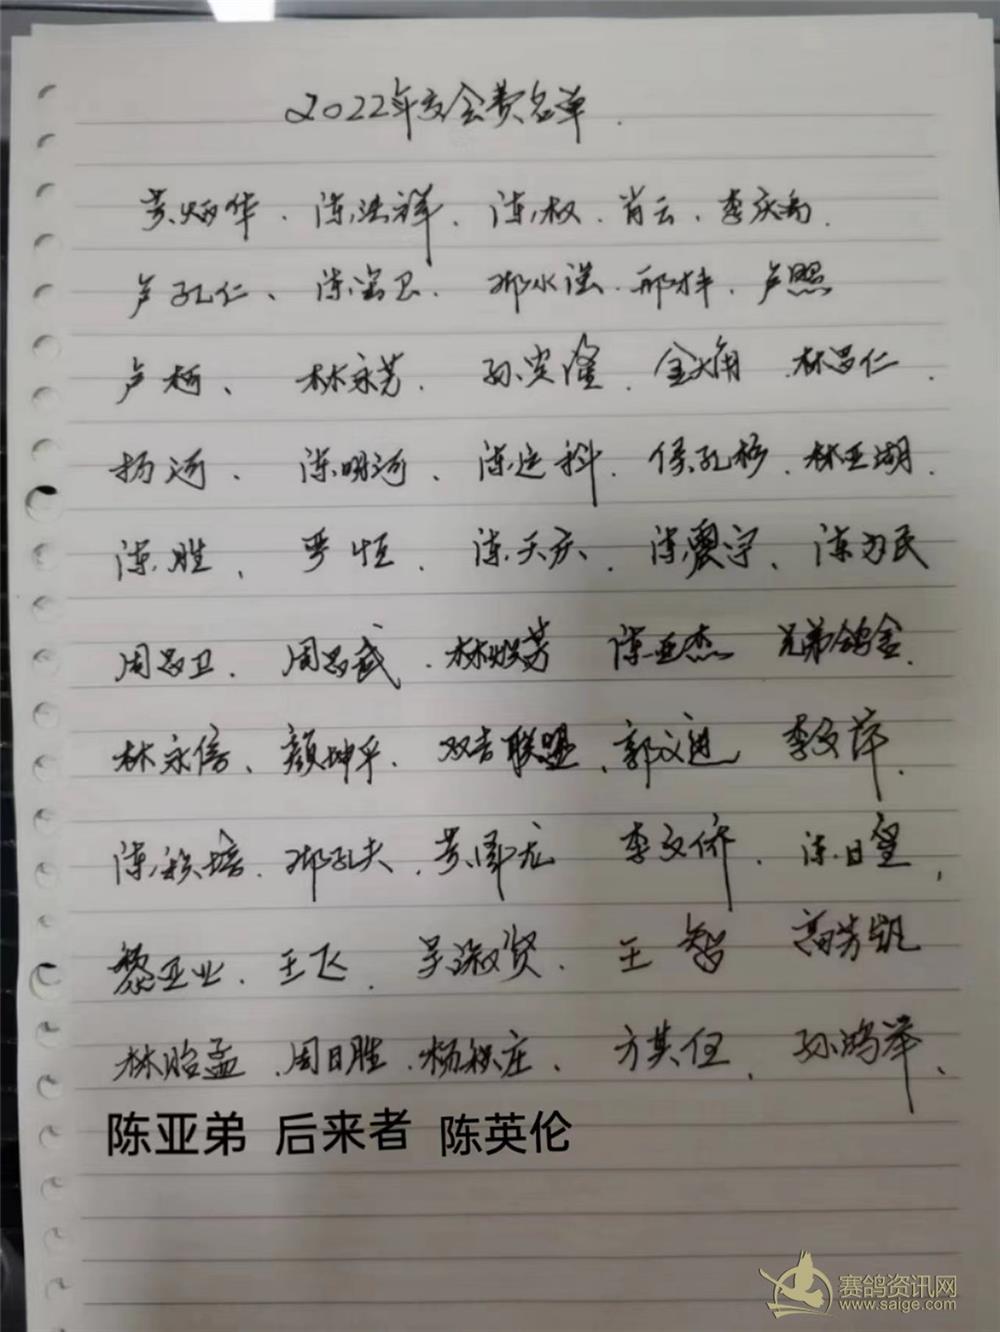 2022年交会费名单.
黄炳华、陈法祥、陈权、肖云、李庆南.
卢孔仁、陈宝卫、邢水强、邢林丰、卢照
卢柯、林永芳、孙定隆、金角、林昌仁、
杨河、陈明河、陈运科、侯孔格、林亚湖、
陈胜、罗恒、陈天庆、陈震宇、陈为民
周昌卫、周昌武、林悦芳 陈亚杰 兄弟鸽舍、
林永信、颜坤平、双吉联盟、郭文进 李文萍、
陈颖培、邢孔夫、黄军龙 李文侨、陈日皇、
黎亚业、王飞、吴淑贤、王智 高芳凯
林昭孟、周日胜、杨颖庄、方其任、孙鸿举、
陈亚弟 后来者 陈英伦
赛鸽资讯网
www.saige.com